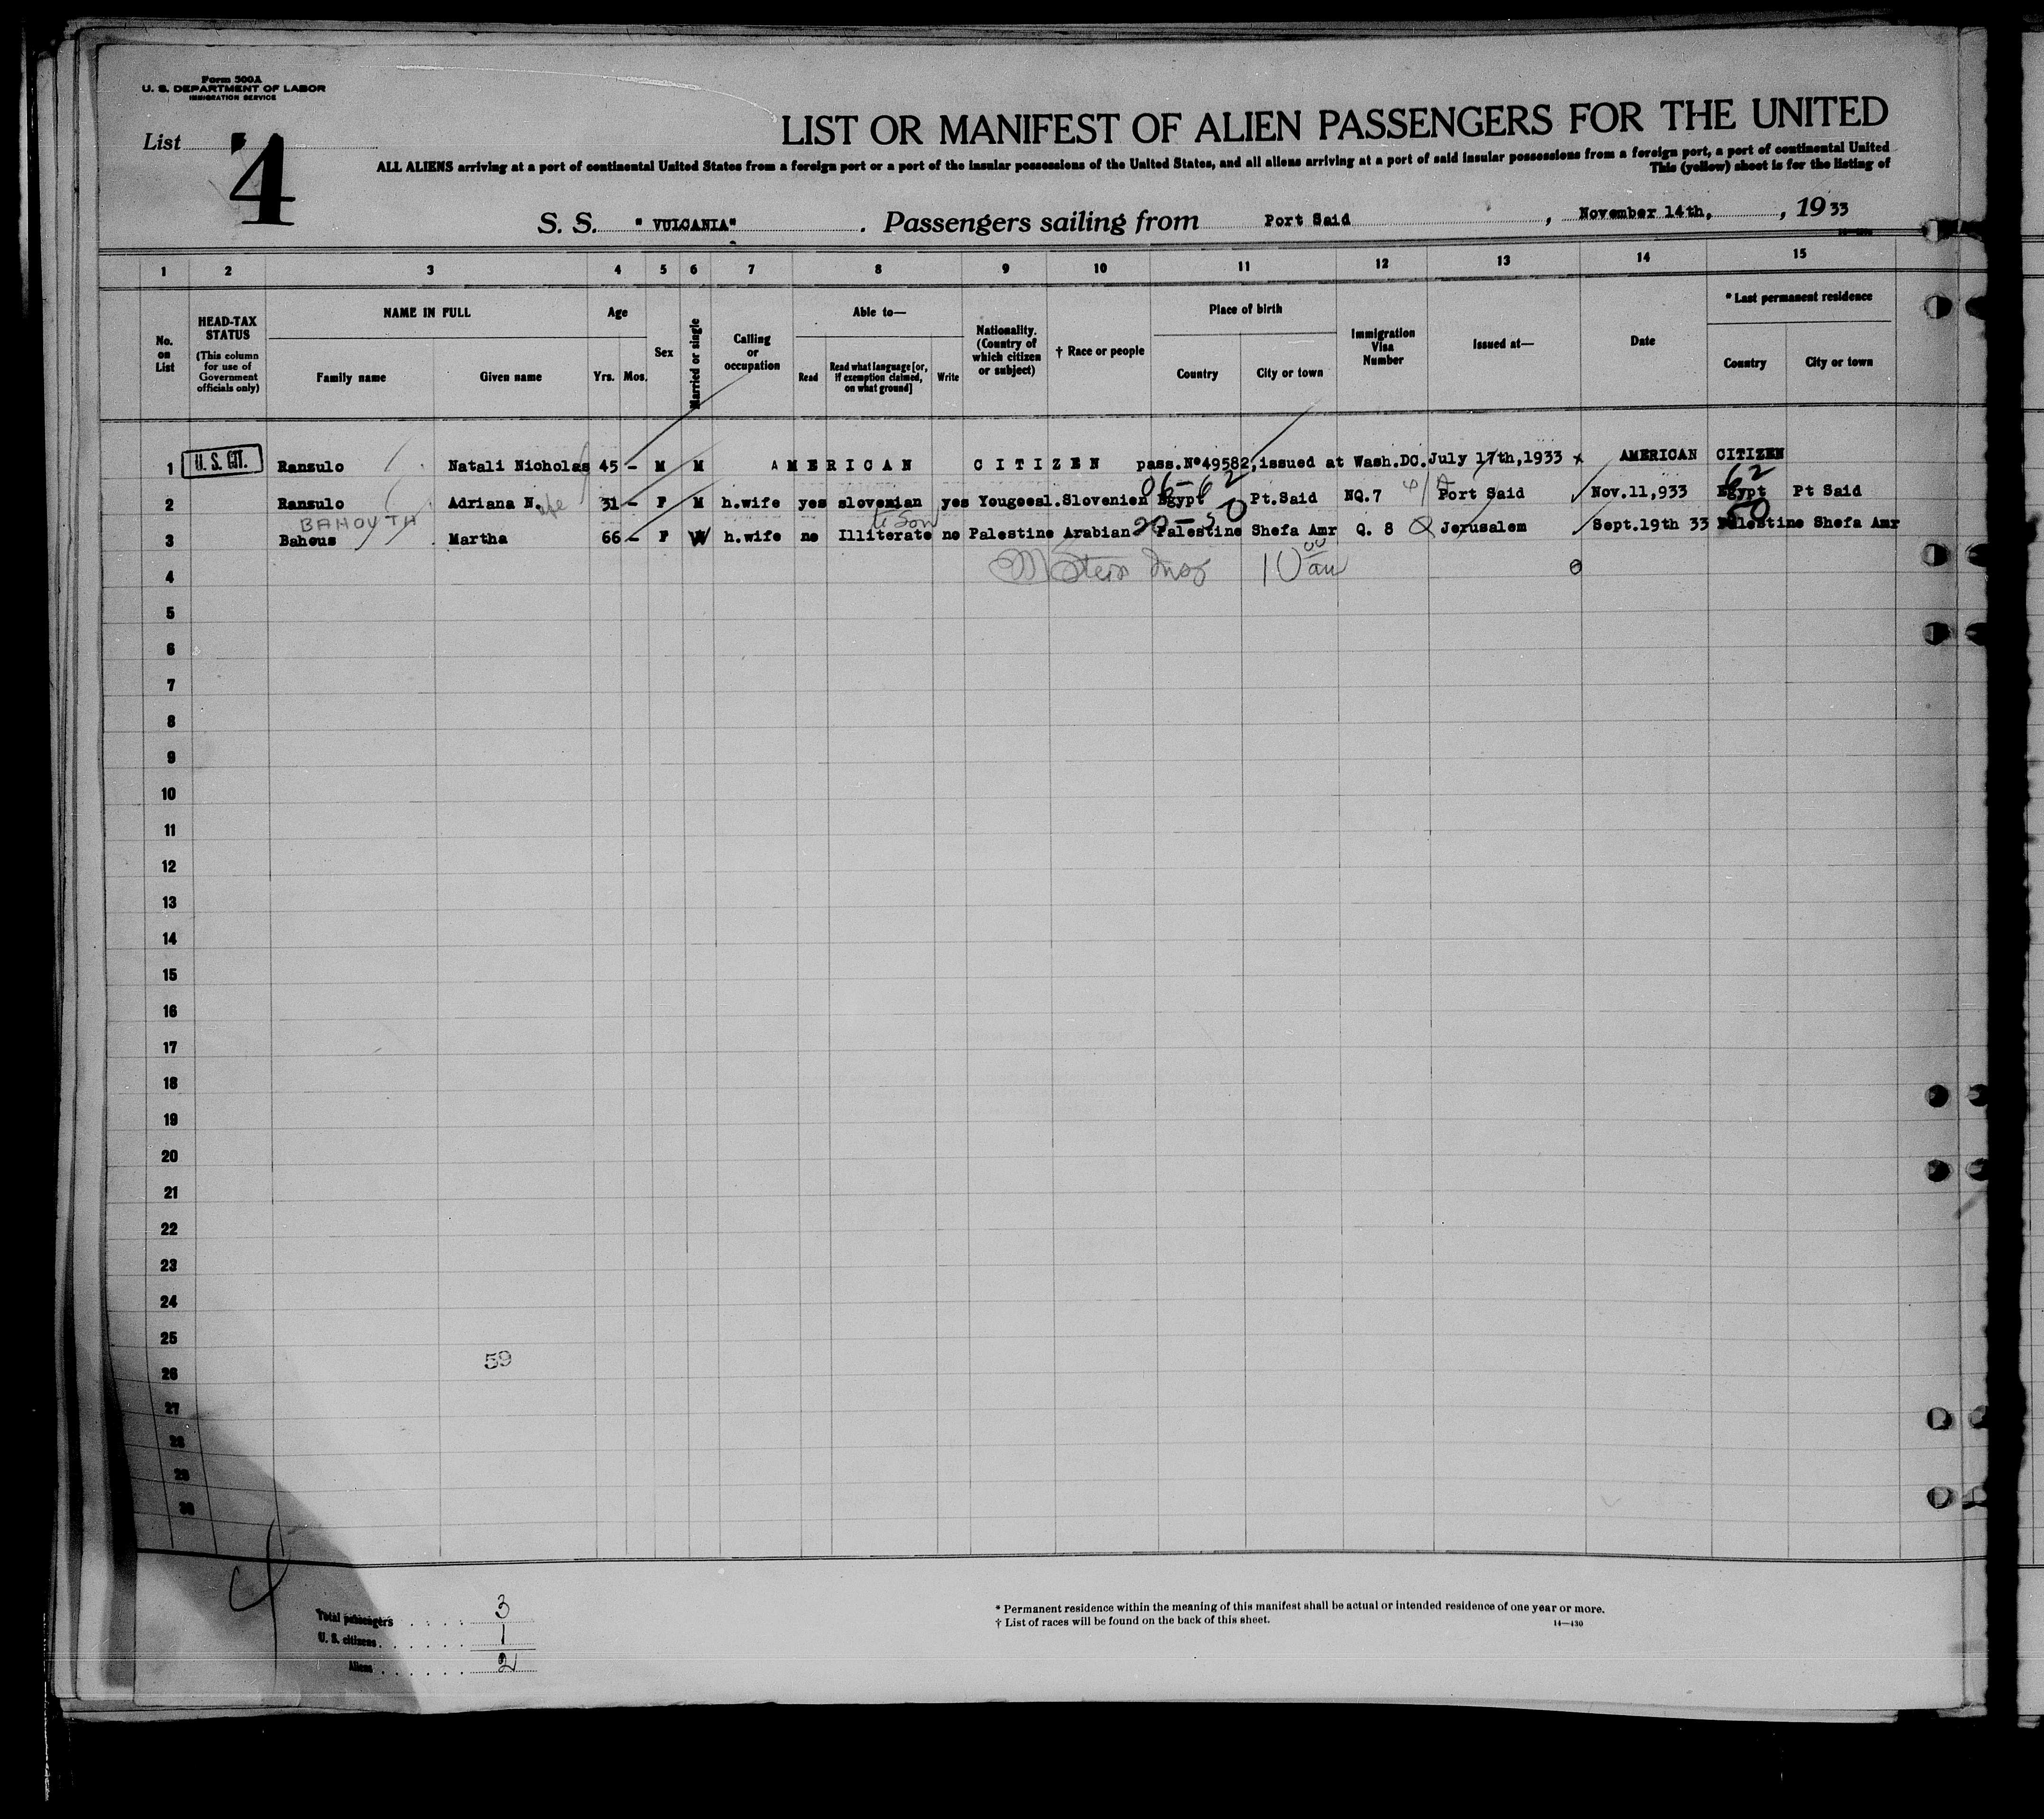 Form 500A
U. S. DEPARTMENT OF LABOR
IMMIGRATION SERVICE
List 4
LIST OR MANIFEST OF ALIEN PASSENGERS FOR THE UNITED
ALL ALIENS arriving at a port of continental United States from a foreign port or a port of the insular possessions of the United States, and all aliens arriving at a port of said insular possessions from a foreign port, a port of continental United
This (yellow) sheet is for the listing of
S. S. "VULCANIA". Passengers sailing from Port Said, November 14th, , 1933
1 2 3 4 5 6 7 8 9 10 11 12 13 14 15
No. on List
HEAD-TAX STATUS (This column for use of Government officials only)
NAME IN FULL
Family name Given name
Age
Yrs. Mos.
Sex
Married or single
Calling or occupation
Able to—
Read Read what language [or, if exemption claimed, on what ground] Write
Nationality. (Country of which citizen or subject)
† Race or people
Place of birth
Country City or town
Immigration Visa Number
Issued at—
Date
* Last permanent residence
Country City or town
1 U. S. CIT. Ransulo Natali Nicholas 45 - M M AMERICAN CITIZEN pass.Nº49582,issued at Wash.DC.July 17th,1933 x AMERICAN CITIZEN
06-62 62
2 Ransulo Adriana N. wife 31 - F M h.wife yes slovenian yes Yougoesl.Slovenien Egypt Pt.Said NQ.7 Port Said Nov.11,933 Egypt Pt Said
BAHOUTH to Son 20-50 50
3 Bahous Martha 66 - F W h.wife no Illiterate no Palestine Arabian Palestine Shefa Amr Q. 8 Jerusalem Sept.19th 33 Palestine Shefa Amr
4
5
6
7
8
9
10
11
12
13
14
15
16
17
18
19
20
21
22
23
24
25
59
26
27
28
29
30
4
Total passengers . . . . 3
U. S. citizens . . . . . . 1
Aliens . . . . . . 2
* Permanent residence within the meaning of this manifest shall be actual or intended residence of one year or more.
† List of races will be found on the back of this sheet.
14—430